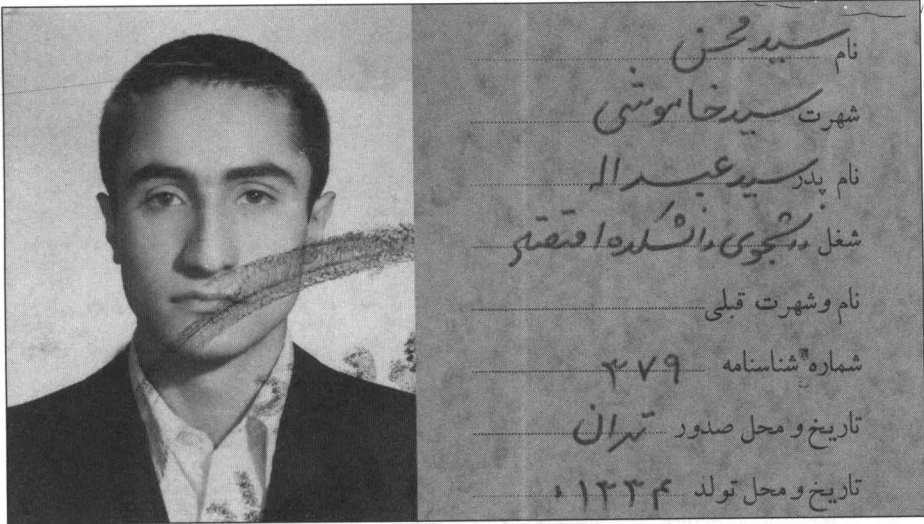 نام سید محسن
شهرت سید خاموشی
نام پدر سید عبدالله
شغل دانشجوی دانشکده اقتصاد
نام و شهرت قبلی
شماره شناسنامه ۳۷۹
تاریخ و محل صدور تهران
تاریخ و محل تولد ۱۳۳۰